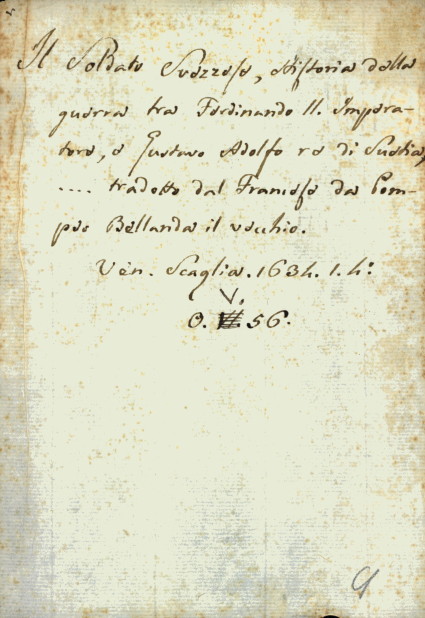 Il Soldato Svezzese, Historia della
guerra tra Ferdinando II. Impera-
tore, e Gustavo Adolfo re di Suetia,
.... tradotto dal Francese da Pom-
peo Bellanda il vecchio.
Ven. Scaglia. 1634. 1. 4:
V.
O. 56.